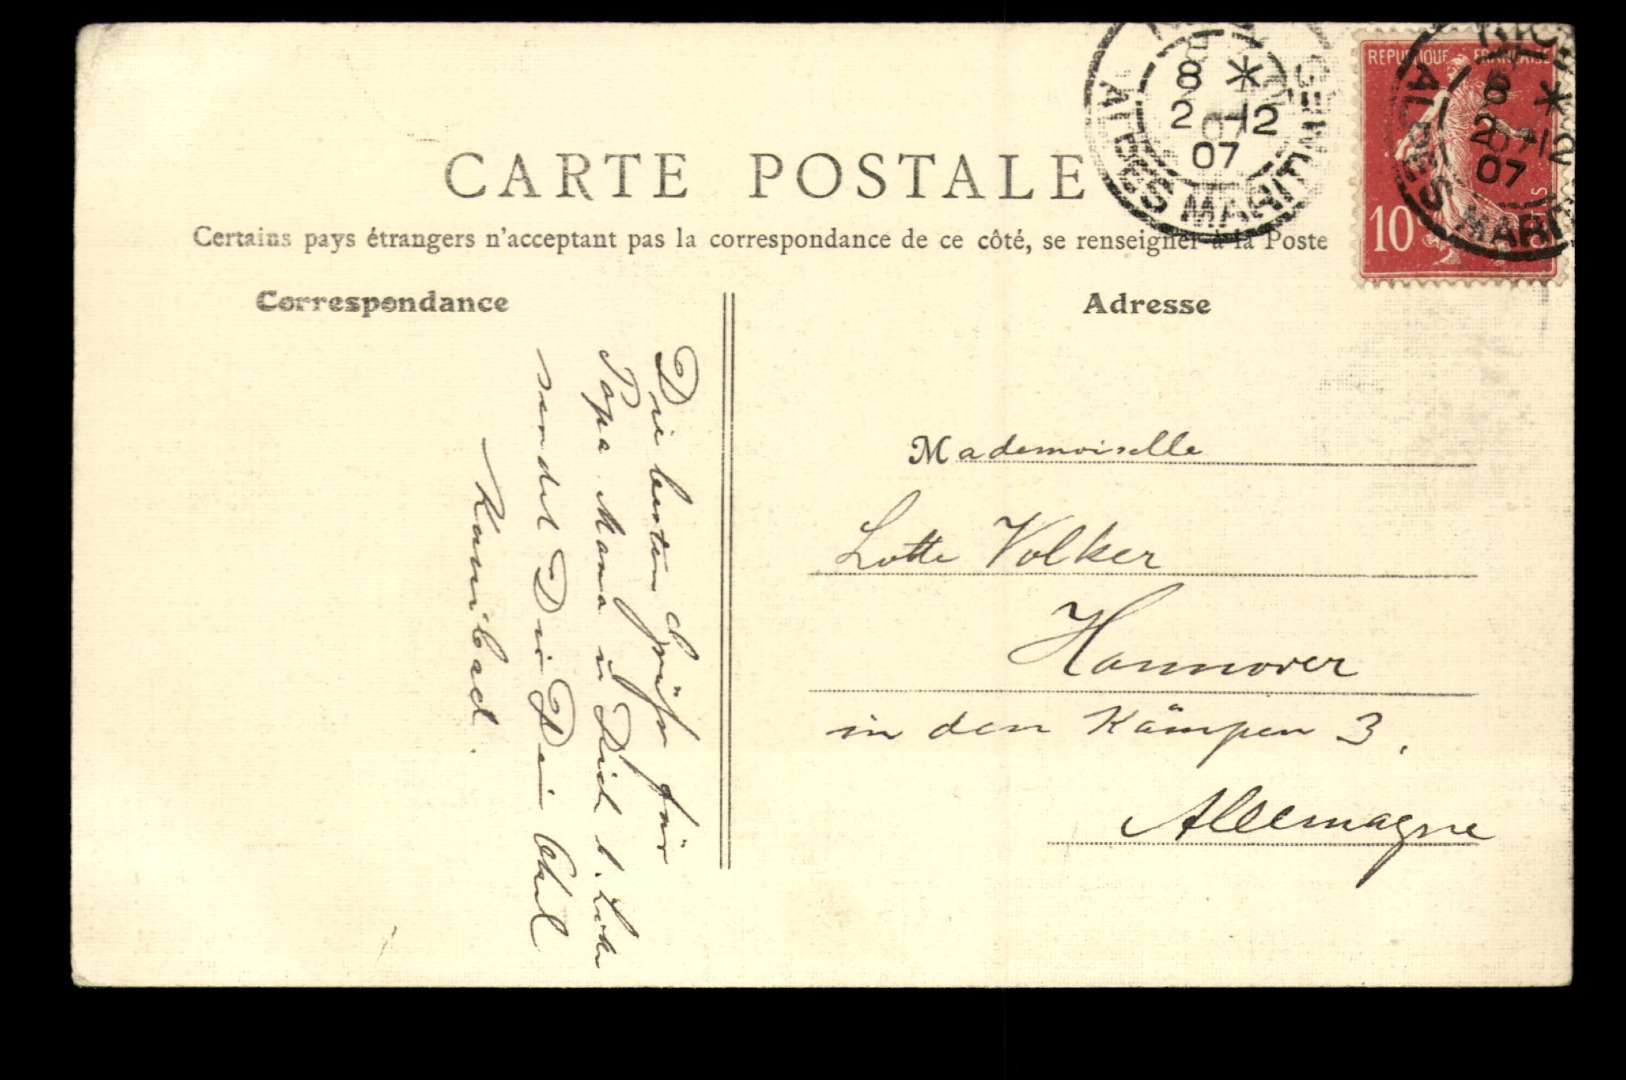 CARTE POSTALE
Certains pays étrangers n'acceptant pas la correspondance de ce côté, se renseigner à la Poste
Correspondance
Adresse
Die besten Grüße für
Papa Mama u Dich l. Lotte
sendet Dir Dein Onkel
Mademoiselle
Lotte Volker
Hannover
in den Kämpen 3.
Allemagne
REPUBLIQUE FRANÇAISE
10
8 *
2 -12
07
ALPES MARITIMES
8 *
2 -12
07
ALPES MARI